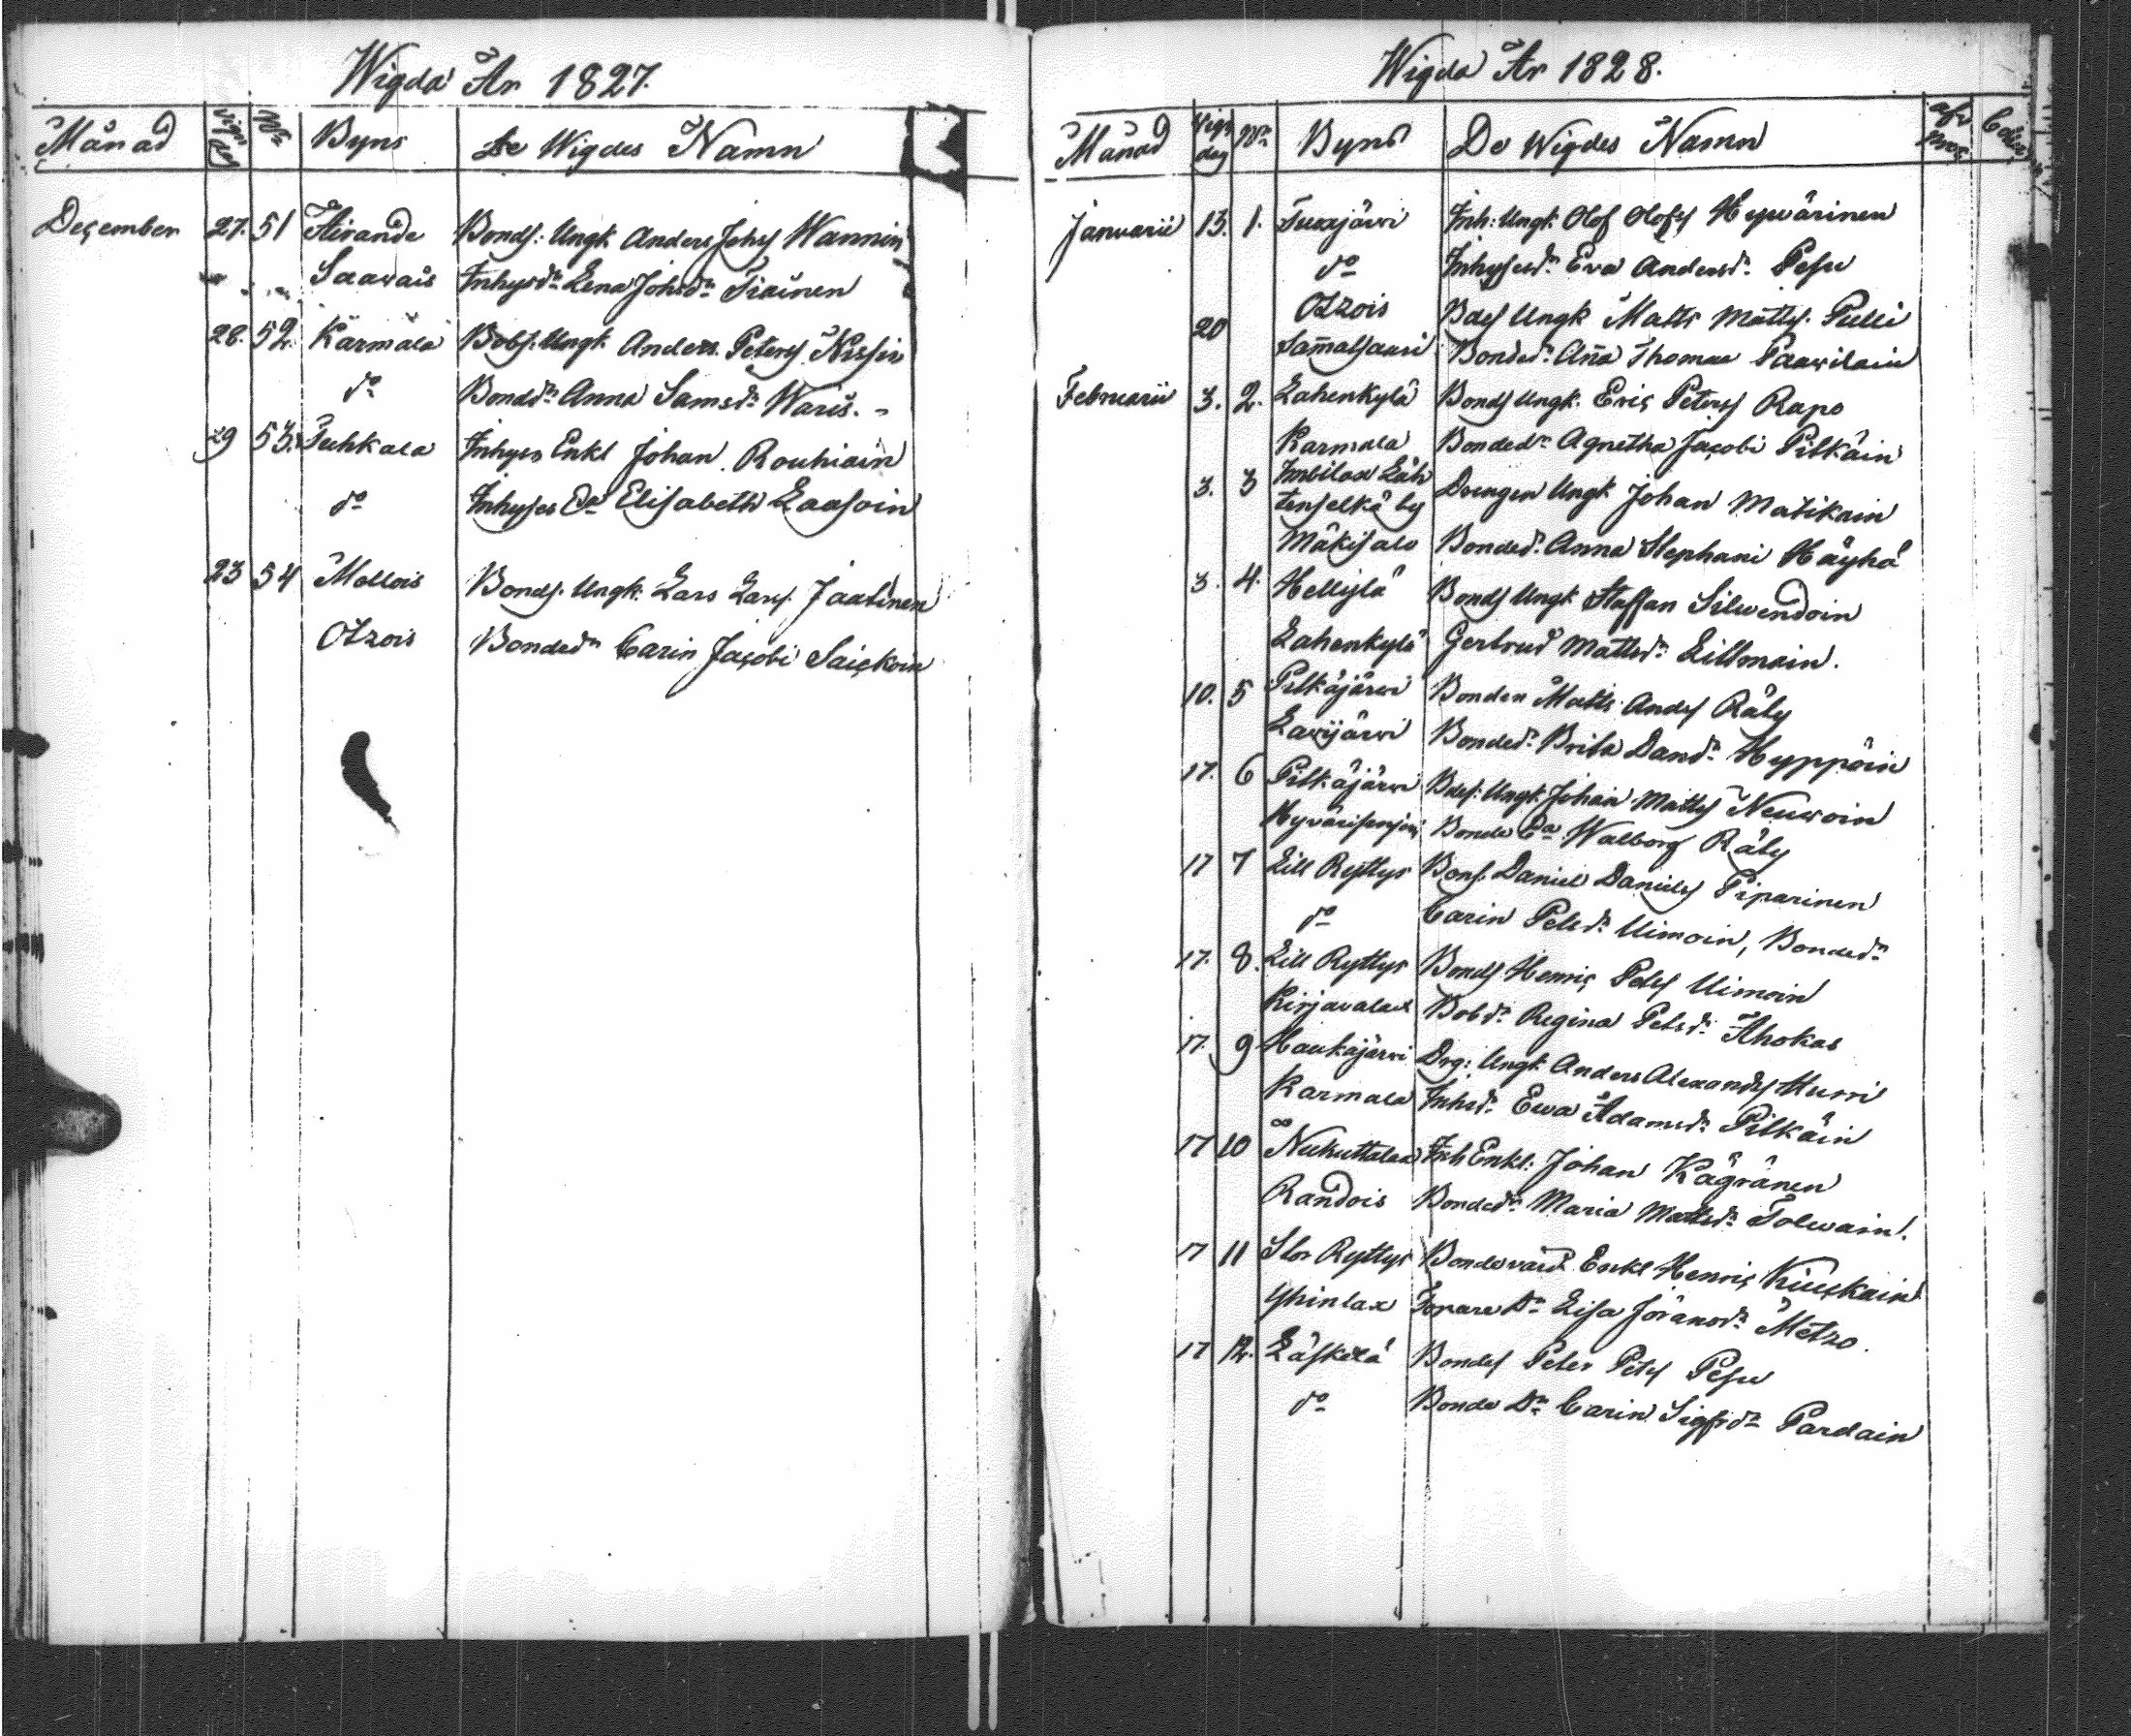 Wigda År 1827.
Månad Vign dag No Byns De Wigdes Namn
December 27. 51 Airande Bonds: Ungk Anders Johs Wannin
Saavais Inhysdr Lena Johsdr Tiainen
28. 52. Karmala Bobs. Ungk. Anders Peters Nissin
do Bonddr Anna Samsdr Waris. -
29 53. Puhkala Inhyses Enkl Johan Rouhiain
do Inhyses Da Elisabeth Laasoin
23 54 Mellois Bonds. Ungk. Lars Lars. Jaatinen
Otzois Bondedr Carin Jacobi Saickoin
Wigda År 1828.
Månad Vign dag No Byns De Wigdes Namn
Januarii 13. 1. Tuxajärvi Inh: Ungk. Olof Olofs Hyvärinen
do Inhysesdr Eva Andersdr Pesu
20 Otzois Bdes Ungk Matts Matts. Pulli
Sammatsaari Bondedr Anna Thomae Paavilain
Februarii 3. 2. Lahenkylä Bonds Ungk. Eric Peters Rapo
Karmala Bondedr Agnetha Jacobi Pitkäin
3. 3 Imbilax Läh
tenselkä by Drengen Ungk Johan Matikain
Mäkisalo Bondedr Anna Stephani Häyhä
3. 4. Hellylä Bonds Ungk Staffan Silvendoin
Lahenkylä Gertrud Mattsdr Littmain.
10. 5 Pitkäjärvi Bonden Matts Ands Räty
Lavijärvi Bondedr Brita Dansdr Hyppöin
17. 6 Pitkäjärvi Bdes. Ungk. Johan Matts Neuvoin
Hyvärisenjärvi Bonde Da Walborg Räty
17 7 Lill Ryttys Bons. Daniel Daniels Piparinen
do Carin Petsdr Uimoin, Bondedr
17. 8. Lill Ryttys Bonds Henric Pets Uimoin
Kirjavalax Bobdr Regina Petsdr Ahokas
17. 9 Haukajärvi Drg: Ungk Anders Alexands Hurri
Karmala Inhsdr Ewa Adamsdr Pitkäin
17 10 Nukuttalax Inh Enkl: Johan Kägränen
Randois Bondedr Maria Mattsdr Tolwain.
17 11 Stor Ryttys Bondevärd Enkl Henric Kiuckain
Yhinlax Torpare Dr Lisa Jöransdr Metzo.
17 12. Läskelä Bondes Peter Pets Pesu
do Bonde Dr Carin Sigfrdr Pardain